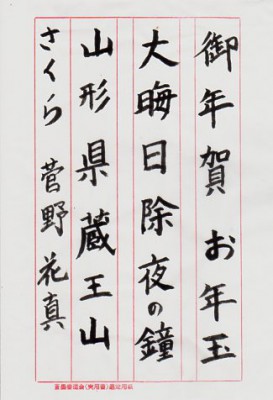 御年賀 お年玉
大晦日除夜の鐘
山形県蔵王山
さくら 菅野 花真